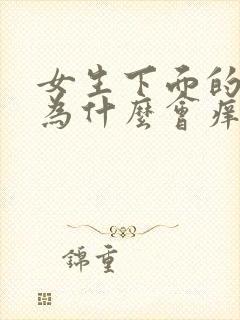 女生下面的
為什麼會痒
錦重